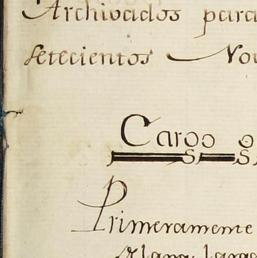 Archivados para
setecientos Nov
Cargo
Primeramente